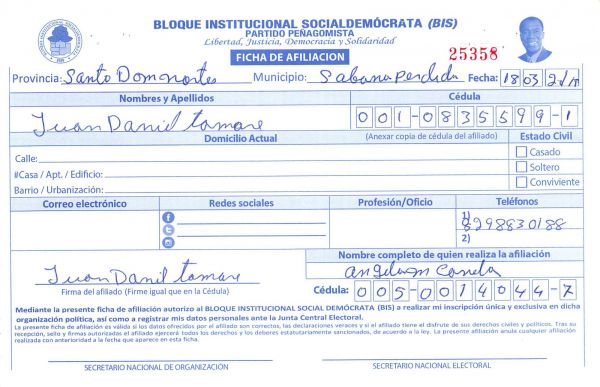 BLOQUE INSTITUCIONAL SOCIALDEMÓCRATA (BIS)
PARTIDO PEÑAGOMISTA
Libertad, Justicia, Democracia y Solidaridad
FICHA DE AFILIACION
25358
Provincia: Santo Dom nortes Municipio: Sabana Perdida Fecha: 18 03
Nombres y Apellidos Cédula
Juan Danil tamare 001-0835599-1
Domicilio Actual (Anexar copia de cédula del afiliado) Estado Civil
Calle: Casado
#Casa / Apt. / Edificio: Soltero
Barrio / Urbanización: Conviviente
Correo electrónico Redes sociales Profesión/Oficio Teléfonos
1) 8298830188
2)
Nombre completo de quien realiza la afiliación
Juan Danil tamare
Firma del afiliado (Firme igual que en la Cédula) Cédula: 005-0014044-7
Mediante la presente ficha de afiliación autorizo al BLOQUE INSTITUCIONAL SOCIAL DEMÓCRATA (BIS) a realizar mi inscripción única y exclusiva en dicha
organización política, así como a registrar mis datos personales ante la Junta Central Electoral.
La presente ficha de afiliación es válida si los datos ofrecidos por el afiliado son correctos, las declaraciones veraces y si el afiliado tiene el disfrute de sus derechos civiles y políticos. Tras su
recepción, sello y firmas autorizadas el afiliado ejercerá todos los derechos y los deberes estatutariamente sancionados, de acuerdo a la ley. La presente afiliación anula cualquier afiliación
realizada con anterioridad a la fecha que aparece en esta ficha.
SECRETARIO NACIONAL DE ORGANIZACIÓN SECRETARIO NACIONAL ELECTORAL